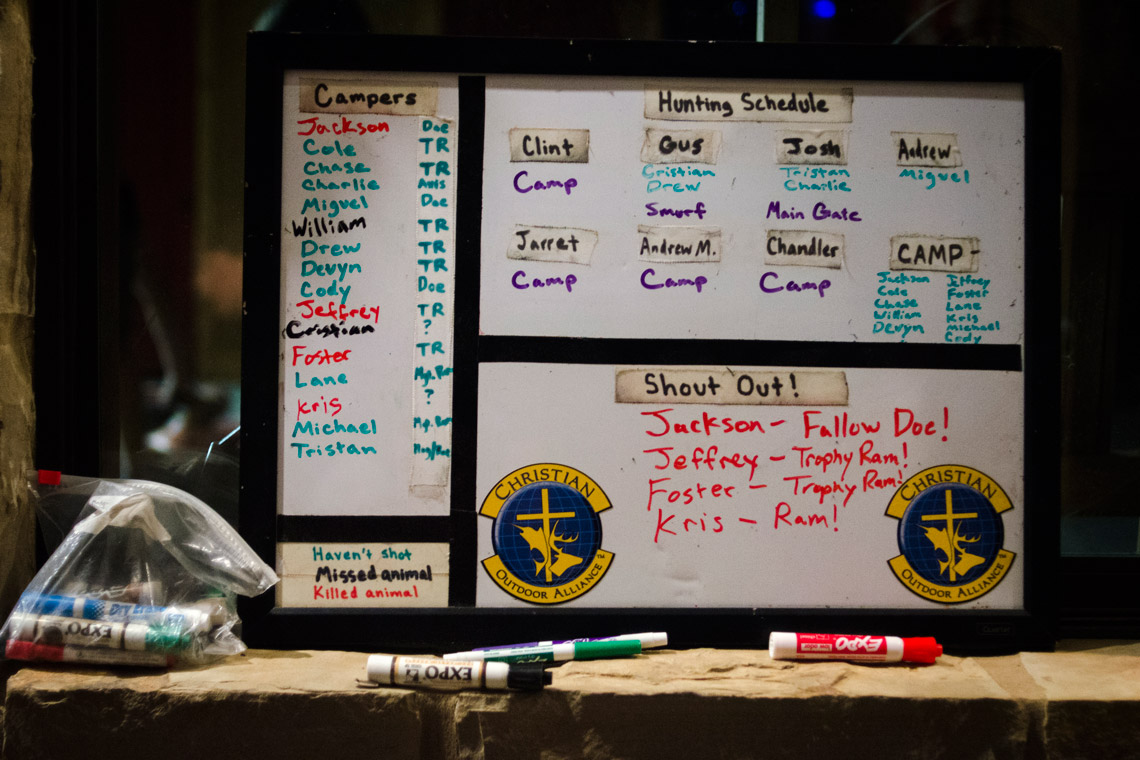 Campers
Jackson Doe
Cole TR
Chase TR
Charlie
Miguel Doe
William TR
Drew TR
Devyn TR
Cody Doe
Jeffrey TR
Cristian ?
Foster TR
Lane
Kris ?
Michael
Tristan
Haven't shot
Missed animal
Killed animal
Hunting Schedule
Clint Gus Josh Andrew
Camp Cristian Tristan Miguel
Drew Charlie
Smurf Main Gate
Jarret Andrew M. Chandler CAMP-
Camp Camp Camp
Jackson Jeffrey
Cole Foster
Chase Lane
William Kris
Devyn Michael
Cody
Shout Out!
Jackson - Fallow Doe!
Jeffrey - Trophy Ram!
Foster - Trophy Ram!
Kris - Ram!
CHRISTIAN
OUTDOOR ALLIANCE™
CHRISTIAN
OUTDOOR ALLIANCE™
EXPO
EXPO
EXPO
low odor